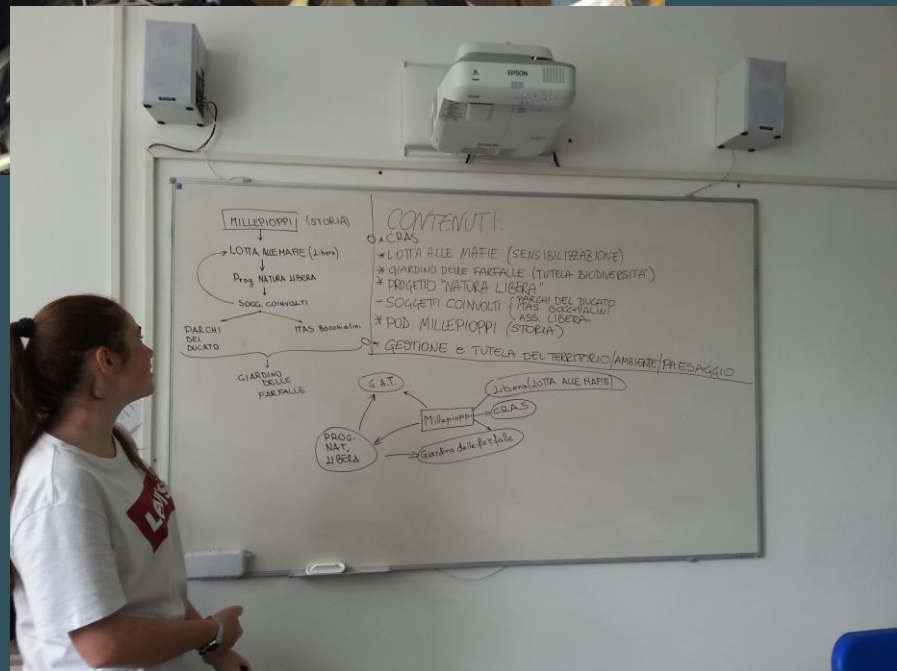 EPSON
MILLEPIOPPI (STORIA)
LOTTA ALLE MAFIE (Libera)
Prog. NATURA LIBERA
SOGG. COINVOLTI
PARCHI
DEL
DUCATO
ITAS Bocchialini
GIARDINO
DELLE
FARFALLE
CONTENUTI:
* CRAS
* LOTTA ALLE MAFIE (SENSIBILIZZAZIONE)
* GIARDINO DELLE FARFALLE (TUTELA BIODIVERSITA')
* PROGETTO "NATURA LIBERA"
- SOGGETTI COINVOLTI
PARCHI DEL DUCATO
ITAS BOCCHIALINI
ASS. LIBERA
* POD. MILLEPIOPPI (STORIA)
* GESTIONE e TUTELA DEL TERRITORIO/AMBIENTE/PAESAGGIO
G.A.T.
Libera (LOTTA ALLE MAFIE)
Millepioppi
CRAS
PROG.
NAT.
LIBERA
Giardino delle farfalle